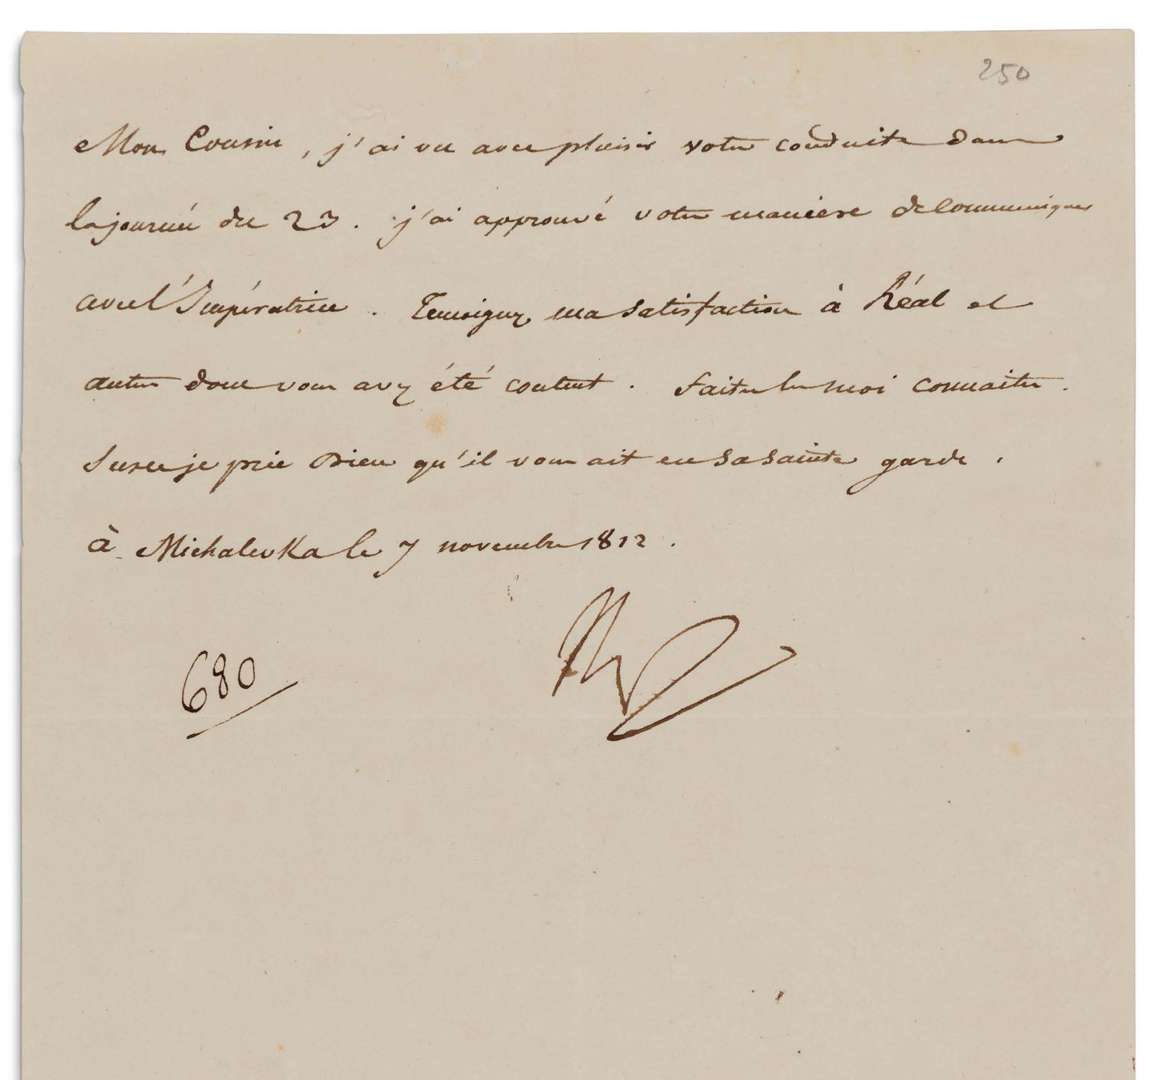 250
Mon Cousin, j'ai vu avec plaisir votre conduite dans
la journée du 23. j'ai approuvé votre manière de communiquer
avec l'Impératrice. Temoignez ma satisfaction à Réal et
autres dont vous avez été content. Faites les moi connaitre.
Sur ce je prie Dieu qu'il vous ait en sa sainte garde.
à Michalevka le 7 novembre 1812.
680